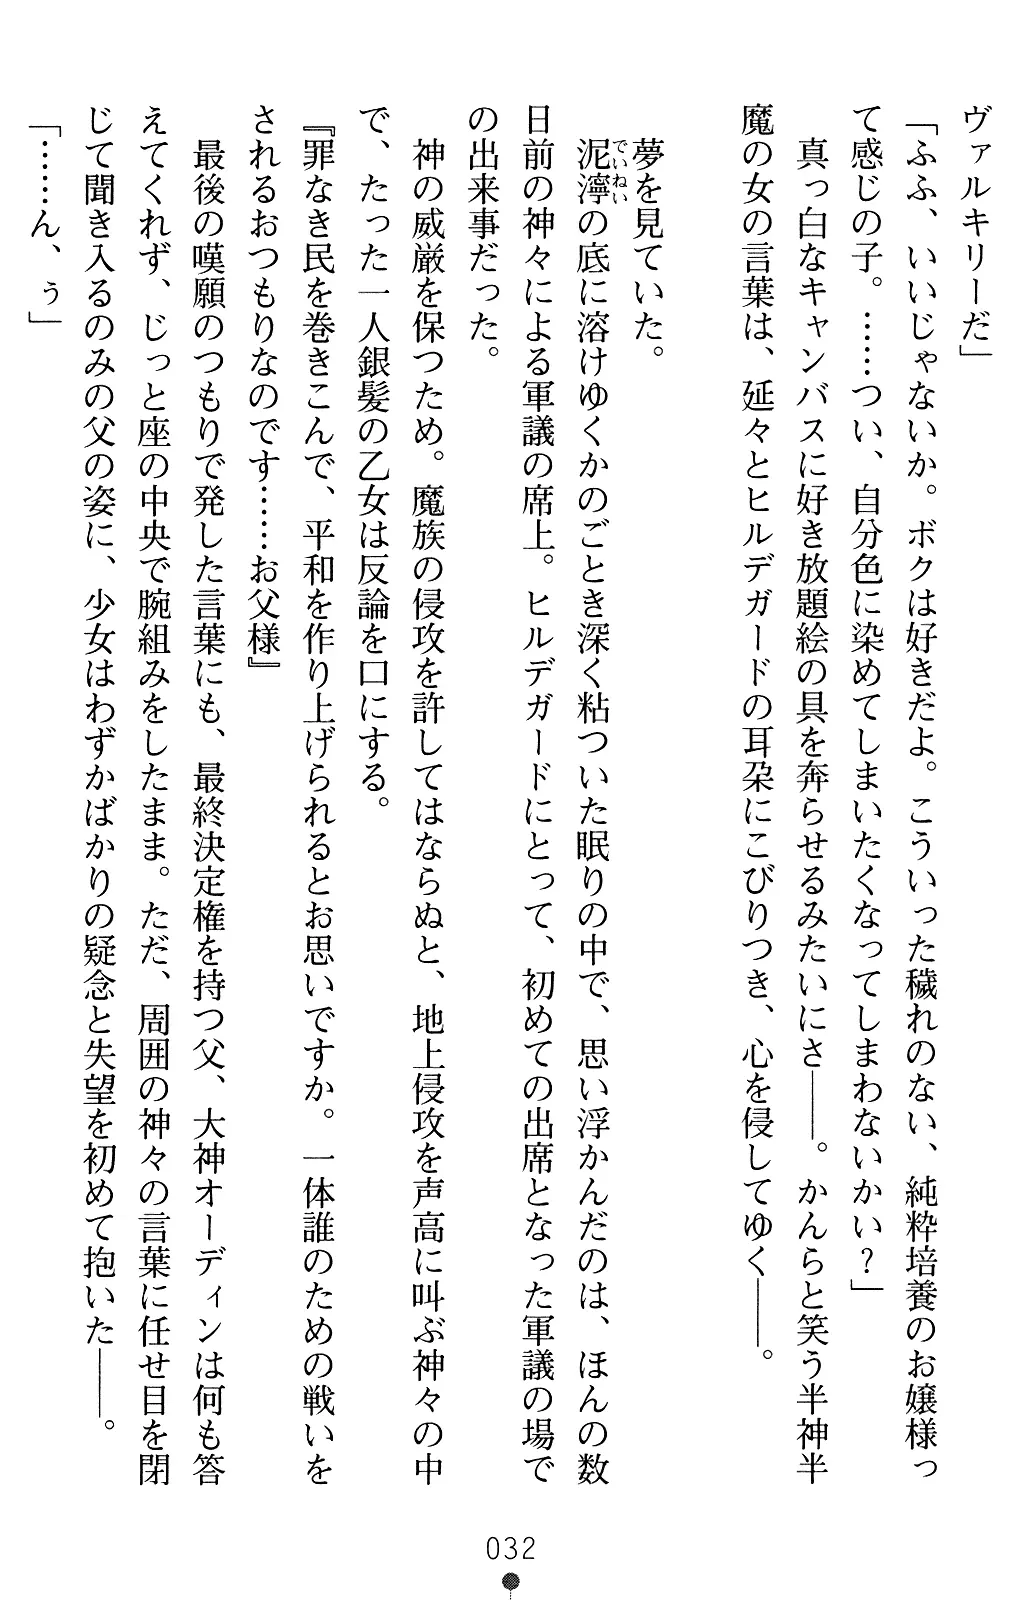 ヴァルキリーだ」
「ふふ、いいじゃないか。ボクは好きだよ。こういった穢れのない、純粋培養のお嬢様っ
て感じの子。……つい、自分色に染めてしまいたくなってしまわないかい？」
真っ白なキャンバスに好き放題絵の具を奔らせるみたいにさ――。かんらと笑う半神半
魔の女の言葉は、延々とヒルデガードの耳朶にこびりつき、心を侵してゆく――。
夢を見ていた。
泥濘の底に溶けゆくかのごとき深く粘ついた眠りの中で、思い浮かんだのは、ほんの数
でいねい
日前の神々による軍議の席上。ヒルデガードにとって、初めての出席となった軍議の場で
の出来事だった。
神の威厳を保つため。魔族の侵攻を許してはならぬと、地上侵攻を声高に叫ぶ神々の中
で、たった一人銀髪の乙女は反論を口にする。
『罪なき民を巻きこんで、平和を作り上げられるとお思いですか。一体誰のための戦いを
されるおつもりなのです……お父様』
最後の嘆願のつもりで発した言葉にも、最終決定権を持つ父、大神オーディンは何も答
えてくれず、じっと座の中央で腕組みをしたまま。ただ、周囲の神々の言葉に任せ目を閉
じて聞き入るのみの父の姿に、少女はわずかばかりの疑念と失望を初めて抱いた――。
「……ん、ぅ」
032